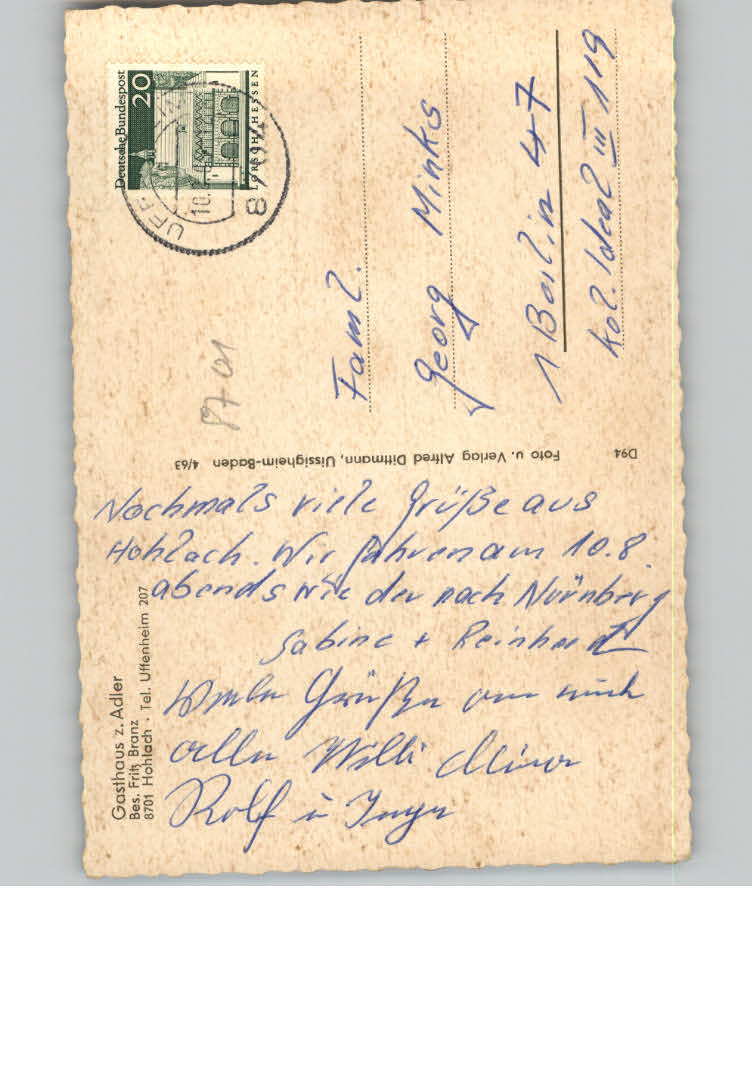 Deutsche Bundespost
20
LORSCH/HESSEN
UFF
10.
8704
8701
Faml.
Georg Minks
1 Berlin 47
Kol. Ideal III 119
D94
Foto u. Verlag Alfred Dittmann, Uissigheim-Baden 4/63
Nochmals viele Grüße aus
Hohlach. Wir fahren am 10.8.
abends wieder nach Nürnberg
Sabine + Reinhardt
Viele Grüße an euch
alle Willi Minna
Rolf u Inge
Gasthaus z. Adler
Bes. Fritz Branz
8701 Hohlach · Tel. Uffenheim 207